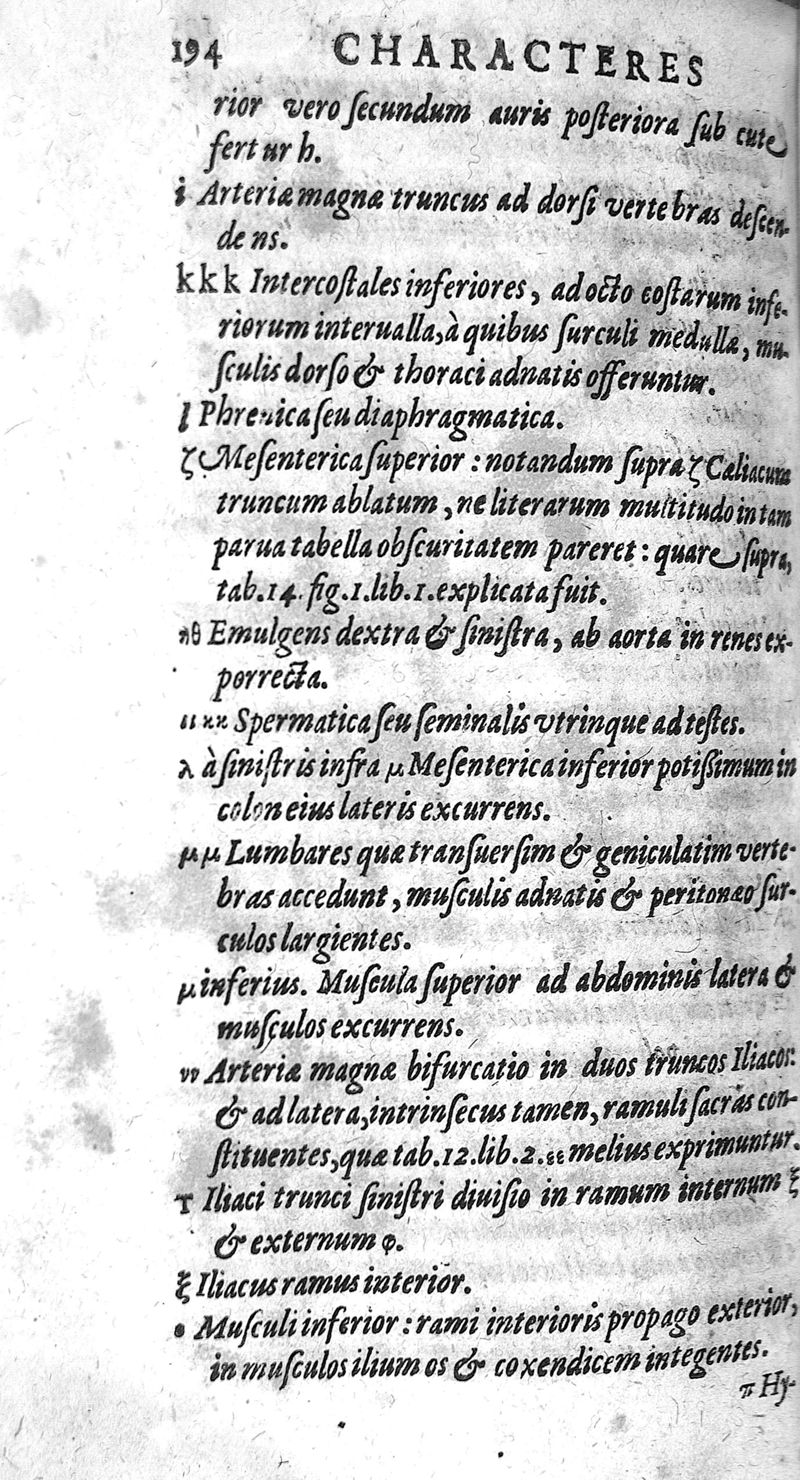 194 CHARACTERES
rior vero ſecundum auris poſteriora ſub cute
fertur h.
i Arteriæ magnæ truncus ad dorſi vertebras deſcen-
dens.
k k k Intercoſtales inferiores, ad octo coſtarum infe-
riorum interualla, à quibus ſurculi medullæ, mu-
ſculis dorſo & thoraci adnatis offeruntur.
l Phrenica ſeu diaphragmatica.
ζ Meſenterica ſuperior : notandum ſupra ζ Cœliacum
truncum ablatum, ne literarum multitudo in tam
parua tabella obſcuritatem pareret : quare ſupra,
tab.14. fig.1.lib.1.explicata fuit.
ηθ Emulgens dextra & ſiniſtra, ab aorta in renes ex-
porrecta.
ιι κκ Spermatica ſeu ſeminalis vtrinque ad teſtes.
λ à ſiniſtris infra μ Meſenterica inferior potißimum in
colon eius lateris excurrens.
μ μ Lumbares quæ tranſuerſim & geniculatim verte-
bras accedunt, muſculis adnatis & peritonæo ſur-
culos largientes.
μ inferius. Muſcula ſuperior ad abdominis latera &
muſculos excurrens.
νν Arteriæ magnæ bifurcatio in duos truncos Iliacos:
& ad latera, intrinſecus tamen, ramuli ſacras con-
ſtituentes, quæ tab.12.lib.2. melius exprimuntur.
τ Iliaci trunci ſiniſtri diuiſio in ramum internum ξ
& externum φ.
ξ Iliacus ramus interior.
ο Muſculi inferior : rami interioris propago exterior,
in muſculos ilium os & coxendicem integentes.
π Hy-